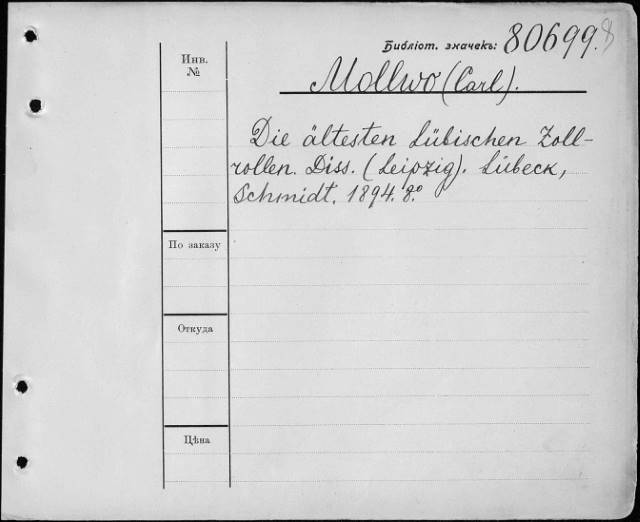 Библіот. значекъ: 80699.8
Инв. №
Mollwo (Carl).
Die ältesten Lübischen Zoll-
rollen. Diss. (Leipzig). Lübeck,
Schmidt. 1894. 8.º
По заказу
Откуда
Цѣна